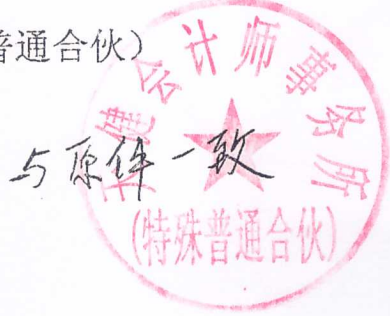 普通合伙)
天健会计师事务所
与原件一致
(特殊普通合伙)